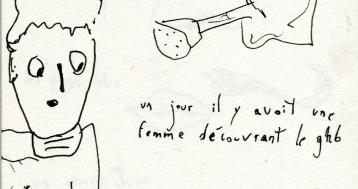 un jour il y avait une
femme découvrant le ghb